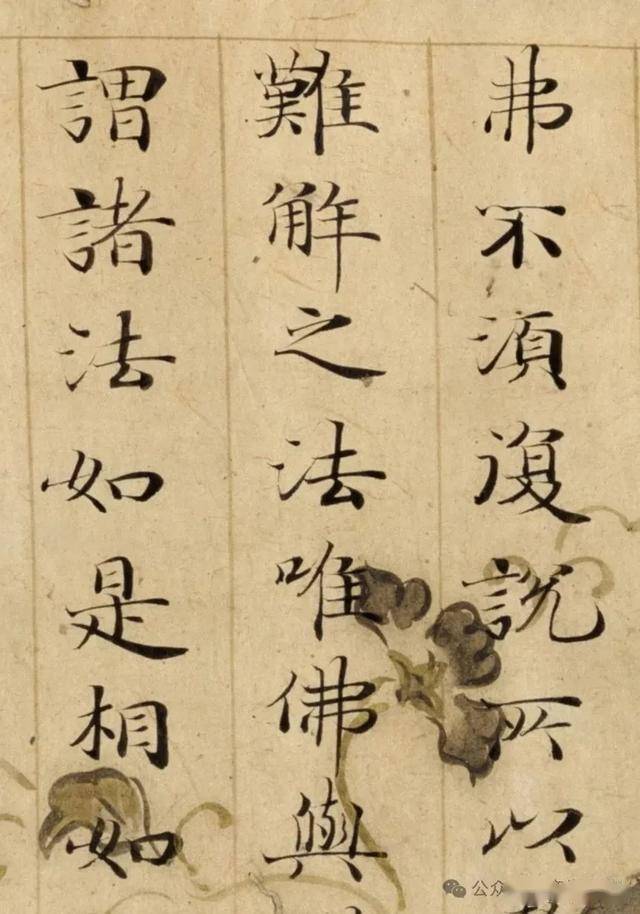 弗不須復說所以
難解之法唯佛與
謂諸法如是相如
公众